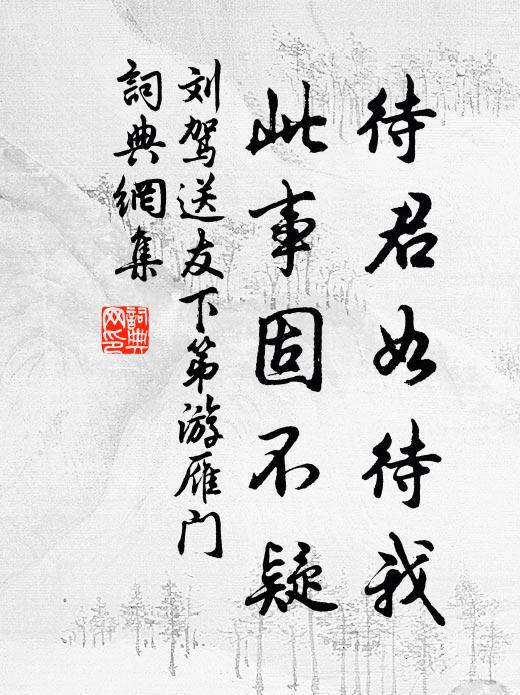 待君如待我
此事固不疑
刘驾送友下第游雁门
詞典網集
詞典网印